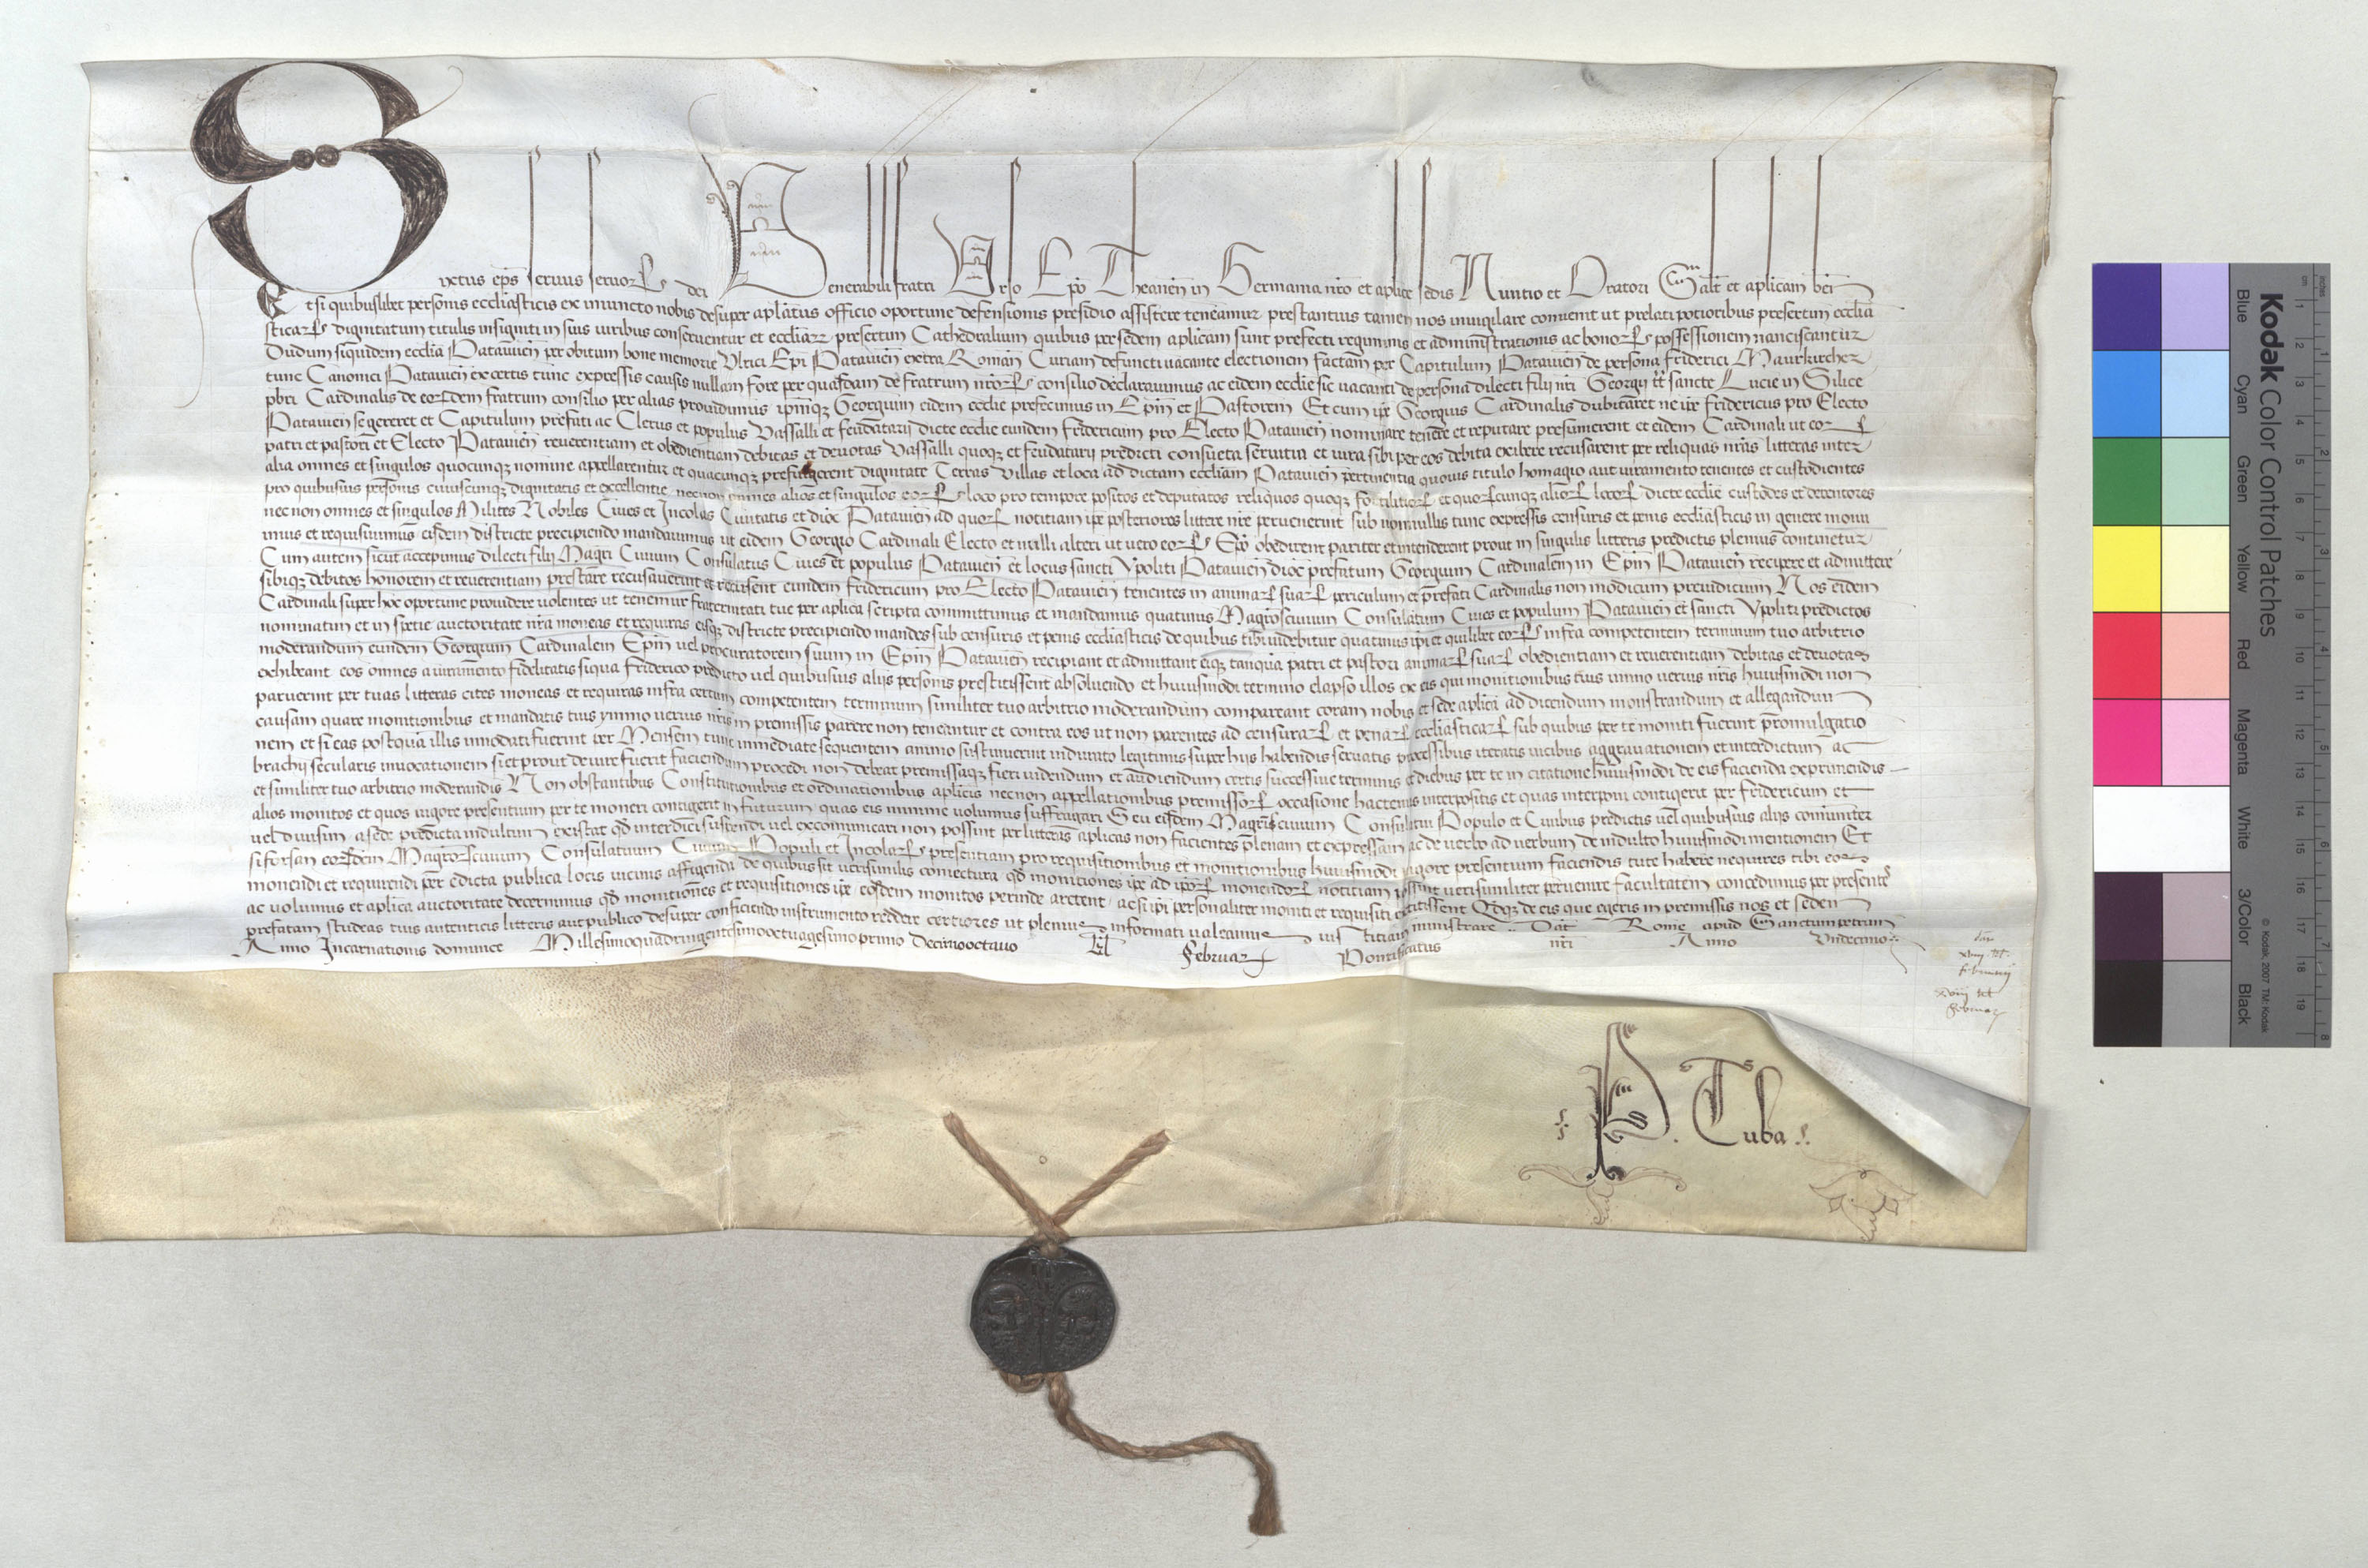 Sixtus ep̄s seruus seruorꝝ dei Venerabili fratri Vrso Ep̄o Theanen̄ in Germania nr̄o et aplice sedis Nuntio et Oratori Saltm̄ et aplicam ben̄
Etsi quibuslibet personis ecclesiasticis ex iniuncto nobis desuper aplatus officio oportune defensionis presidio assistere teneamur prestantius tamen nos inuigilare conuenit ut prelati potioribus presertim ecclīa
sticarꝝ dignitatum titulis insigniti in suis iuribus conseruentur et eccliarꝝ presertim Cathedralium quibus per sedem aplicam sunt prefecti regiminis et administrationis ac bonorꝝ possessionem nanciscantur
Dudum siquidem ecclia Patauien̄ per obitum bone memorie Vlrici Ep̄i Patauien̄ extra Roman̄ Curiam defuncti uacante electionem factam per Capitulum Patauien̄ de persona friderici Maurkircher
tunc Canonici Patauien̄ ex certis tunc expressis causis nullam fore per quasdam de fratrum nr̄orꝝ consilio declarauimus ac eidem ecclie sic uacanti de persona dilecti filij nr̄i Georgij tt̄ sancte Lucie in Silice
pbr̄i Cardinalis de eorꝝdem fratrum consilio per alias prouidimus ipm̄qꝫ Georgium eidem ecclie prefecimus in Ep̄m et Pastorem Et cum ip̄e Georgius Cardinalis dubitaret ne ip̄e fridericus pro Electo
Patauien̄ se gereret et Capitulum prefati ac Clerus et populus Vassalli et feudatarij dicte ecclie eundem fridericum pro Electo Patauien̄ nominare tenere et reputare presumerent et eidem Cardinali ut eorꝝ
patri et pastori et Electo Patauien̄ reuerentiam et obedientiam debitas et deuotas Vassalli quoqꝫ et feudatarij predicti consueta seruitia et iura sibi per eos debita exibere recusarent per reliquas nr̄as litteras inter
alia omnes et singulos quocunqꝫ nomine appellarentur et quacunqꝫ presulgerent dignitate Terras Villas et loca ad dictam eccliam Patauien̄ pertinentia quouis titulo homagio aut iuramento tenentes et custodientes
pro quibusuis personis cuiuscunqꝫ dignitatis et excellentie necnon omnes alios et singulos eorꝝ loco pro tempore positos et deputatos reliquos quoqꝫ fortilitiorꝝ et quorꝝcunqꝫ aliorꝝ locorꝝ dicte ecclie custodes et detentores
nec non omnes et singulos Milites Nobiles Ciues et Incolas Ciuitatis et dioc̄ Patauien̄ ad quorꝝ notitiam ip̄e posteriores littere nr̄e peruenerint sub nonnullis tunc expressis censuris et penis ecclesiasticis in genere monu
imus et requisiuimus eisdem districte precipiendo mandauimus ut eidem Georgio Cardinali Electo et nulli alteri ut uero eorꝝ Ep̄o obedirent pariter et intenderent prout in singulis litteris predictis plenius continetur
Cum autem sicut accepimus dilecti filij Magr̄i Ciuium Consulatus Ciues et populus Patauien̄ et locus sancti Ypoliti Patauien̄ dioc̄ prefatum Georgium Cardinalem in Ep̄m Patauien̄ recipere et admittere
sibiqꝫ debitos honorem et reuerentiam prestare recusauerint et recusent eundem fridericum pro Electo Patauien̄ tenentes in animarꝝ suarꝝ periculum et prefati Cardinalis non modicum preiudicium Nos eidem
Cardinali super hoc oportune prouidere uolentes ut tenemur fraternitati tue per aplica scripta committimus et mandamus quatinus Magr̄osciuium Consulatum Ciues et populum Patauien̄ et sancti Ypoliti predictos
nominatim et in specie auctoritate nr̄a moneas et requiras eisqꝫ districte precipiendo mandes sub censuris et penis ecclesiasticis de quibus tibi uidebitur quatinus ip̄i et quilibet eorꝝ infra competentem terminum tuo arbitrio
moderandum eundem Georgium Cardinalem Ep̄m uel procuratorem suum in Ep̄m Patauien̄ recipiant et admittant eiqꝫ tanqua patri et pastori animarꝝ suarꝝ obedientiam et reuerentiam debitas et deuotas
exhibeant eos omnes a iuramento fidelitatis siqua friderico predicto uel quibusuis alijs personis prestitissent absoluendo et huiusmodi termino elapso illos ex eis qui monitionibus tuis immo uerius nr̄is huiusmodi non
paruerint per tuas litteras cites moneas et requiras infra certum competentem terminum similiter tuo arbitrio moderandum compareant coram nobis et sede aplica ad dicendum monstrandum et allegandum
causam quare monitionibus et mandatis tuis ymmo uerius nr̄is in premissis parere non teneantur et contra eos ut non parentes ad censurarꝝ et penarꝝ ecclesiasticarꝝ sub quibus per te moniti fuerint promulgatio
nem et si eas postqua illis innodati fuerint per Mensem tunc immediate sequentem animo sustinuerint indurato legitimis super hijs habendis seruatis processibus iteratis uicibus aggrauationem et interdictum ac
brachij secularis inuocationem si et prout de iure fuerit faciendam procedi non debeat premissaqꝫ fieri uidendum et audiendum certis successiue terminis et diebus per te in citatione huiusmodi de eis facienda exprimendis
et similiter tuo arbitrio moderandis Non obstantibus Constitutionibus et ordinationibus aplicis necnon appellationibus premissorꝝ occasione hactenus interpositis et quas interponi contigerit per fridericum et
alios monitos et quos uigore presentium per te moneri contigerit in futurum quas eis minime uolumus suffragari Seu eisdem Magr̄isciuium Consulatui Populo et Ciuibus predictis uel quibusuis alijs comuniter
uel diuisim a sede predicta indultum existat qd̄ interdici suspendi uel excomunicari non possint per litteras aplicas non facientes plenam et expressam ac de uerbo ad uerbum de indulto huiusmodi mentionem Et
si forsan eorꝝdem Magr̄orꝝciuium Consulatuum Ciuium Populi et Incolarꝝ presentiam pro requisitionibus et monitionibus huiusmodi uigore presentium faciendis tute habere nequires tibi eos
monendi et requirendi per edicta publica locis uicinis affigenda de quibus sit uerisimilis coniectura qd̄ monitiones ip̄e ad ip̄orꝝ monendorꝝ notitiam possint uerisimiliter peruenire facultatem concedimus per presentes
ac uolumus et aplica auctoritate decernimus qd̄ monitiones et requisitiones ip̄e eosdem monitos perinde arctent ac si ip̄i personaliter moniti et requisiti extitissent Qdqꝫ de eis que egeris in premissis nos et sedem
prefatam studeas tuis autenticis litteris aut publico desuper conficiendo instrumento reddere certiores ut plenius informati ualeamus iustitiam ministrare .. Dat̄ Rome apud Sanctumpetrum
Anno Incarnationis dominice Millesimoquadringentesimooctuagesimoprimo Decimooctauo kl̄ Februarꝝ Pontificatus nr̄i Anno Vndecimo
xviij kl̄
februarij
xviij kl̄
Februar
P. Tuba
Kodak Color Control Patches
Blue Cyan Green Yellow Red Magenta White 3/Color Black
© Kodak, 2007 TM: Kodak
cm 1 2 3 4 5 6 7 8 9 10 11 12 13 14 15 16 17 18 19
inches 1 2 3 4 5 6 7 8